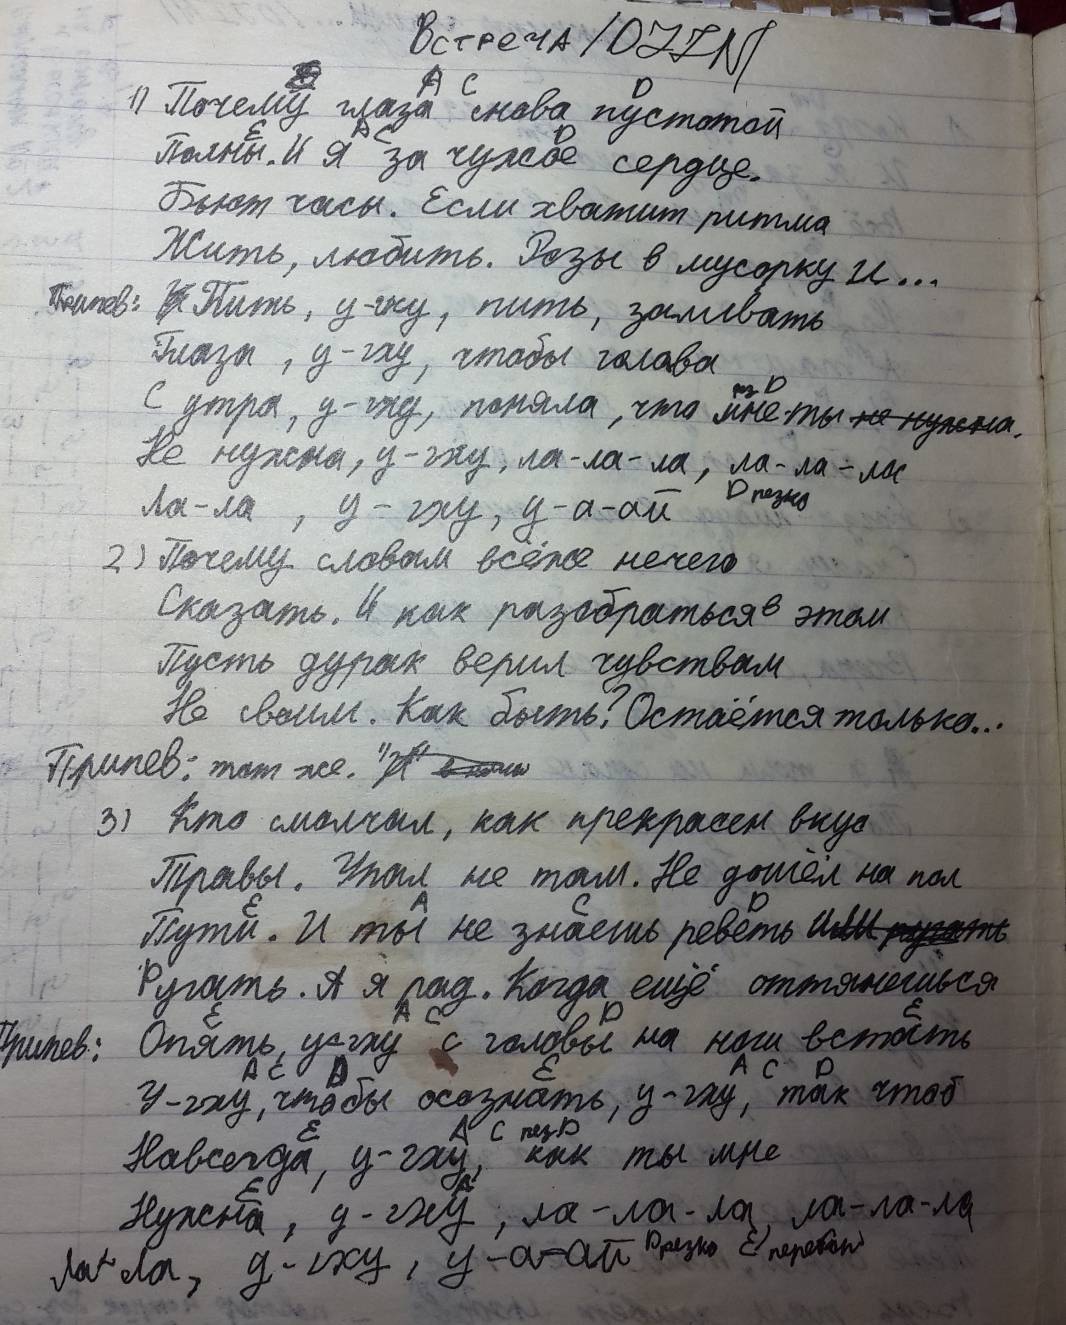 Встреча /OZZN/
A C D
1) Почему глаза снова пустотой
E A C D
Полны. И я за чужое сердце.
Бьют часы. Если хватит ритма
Жить, любить. Розы в мусорку и...
Припев: Пить, у-гху, пить, заливать
Глаза, у-гху, чтобы голова
рез D
С утра, у-гху, поняла, что мне ты не нужна.
Не нужна, у-гху, ла-ла-ла, ла-ла-ла
Ла-ла, у-гху, у-а-ай D резко
2) Почему словам всё же нечего
Сказать. И как разобраться в этом
Пусть дурак верил чувствам
Не своим. Как быть? Остаётся только...
Припев: тот же.
3) Кто смолчал, как прекрасен вкус
Травы. Упал не там. Не дошёл на пол
E A C D
Пути. И ты не знаешь реветь или ругать
Ругать. А я рад. Когда ещё оттянешься
E A C D E
Припев: Опять, у-гху с головы на ноги встать
A C D E A C D
У-гху, чтобы осознать, у-гху, так чтоб
E A C рез D
Навсегда, у-гху, как ты мне
E A
Нужна, у-гху, ла-ла-ла, ла-ла-ла
Ла-ла, у-гху, у-а-ай D резко E перебор